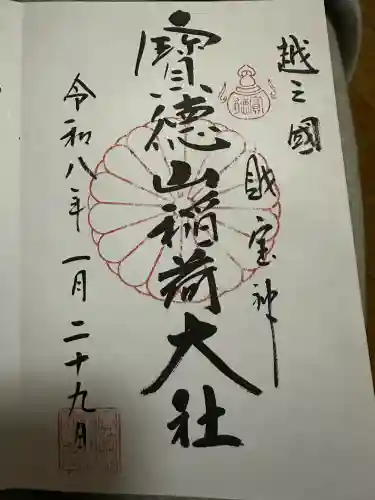 越之國
財宝神
寳德山稲荷大社
令和八年一月二十九日